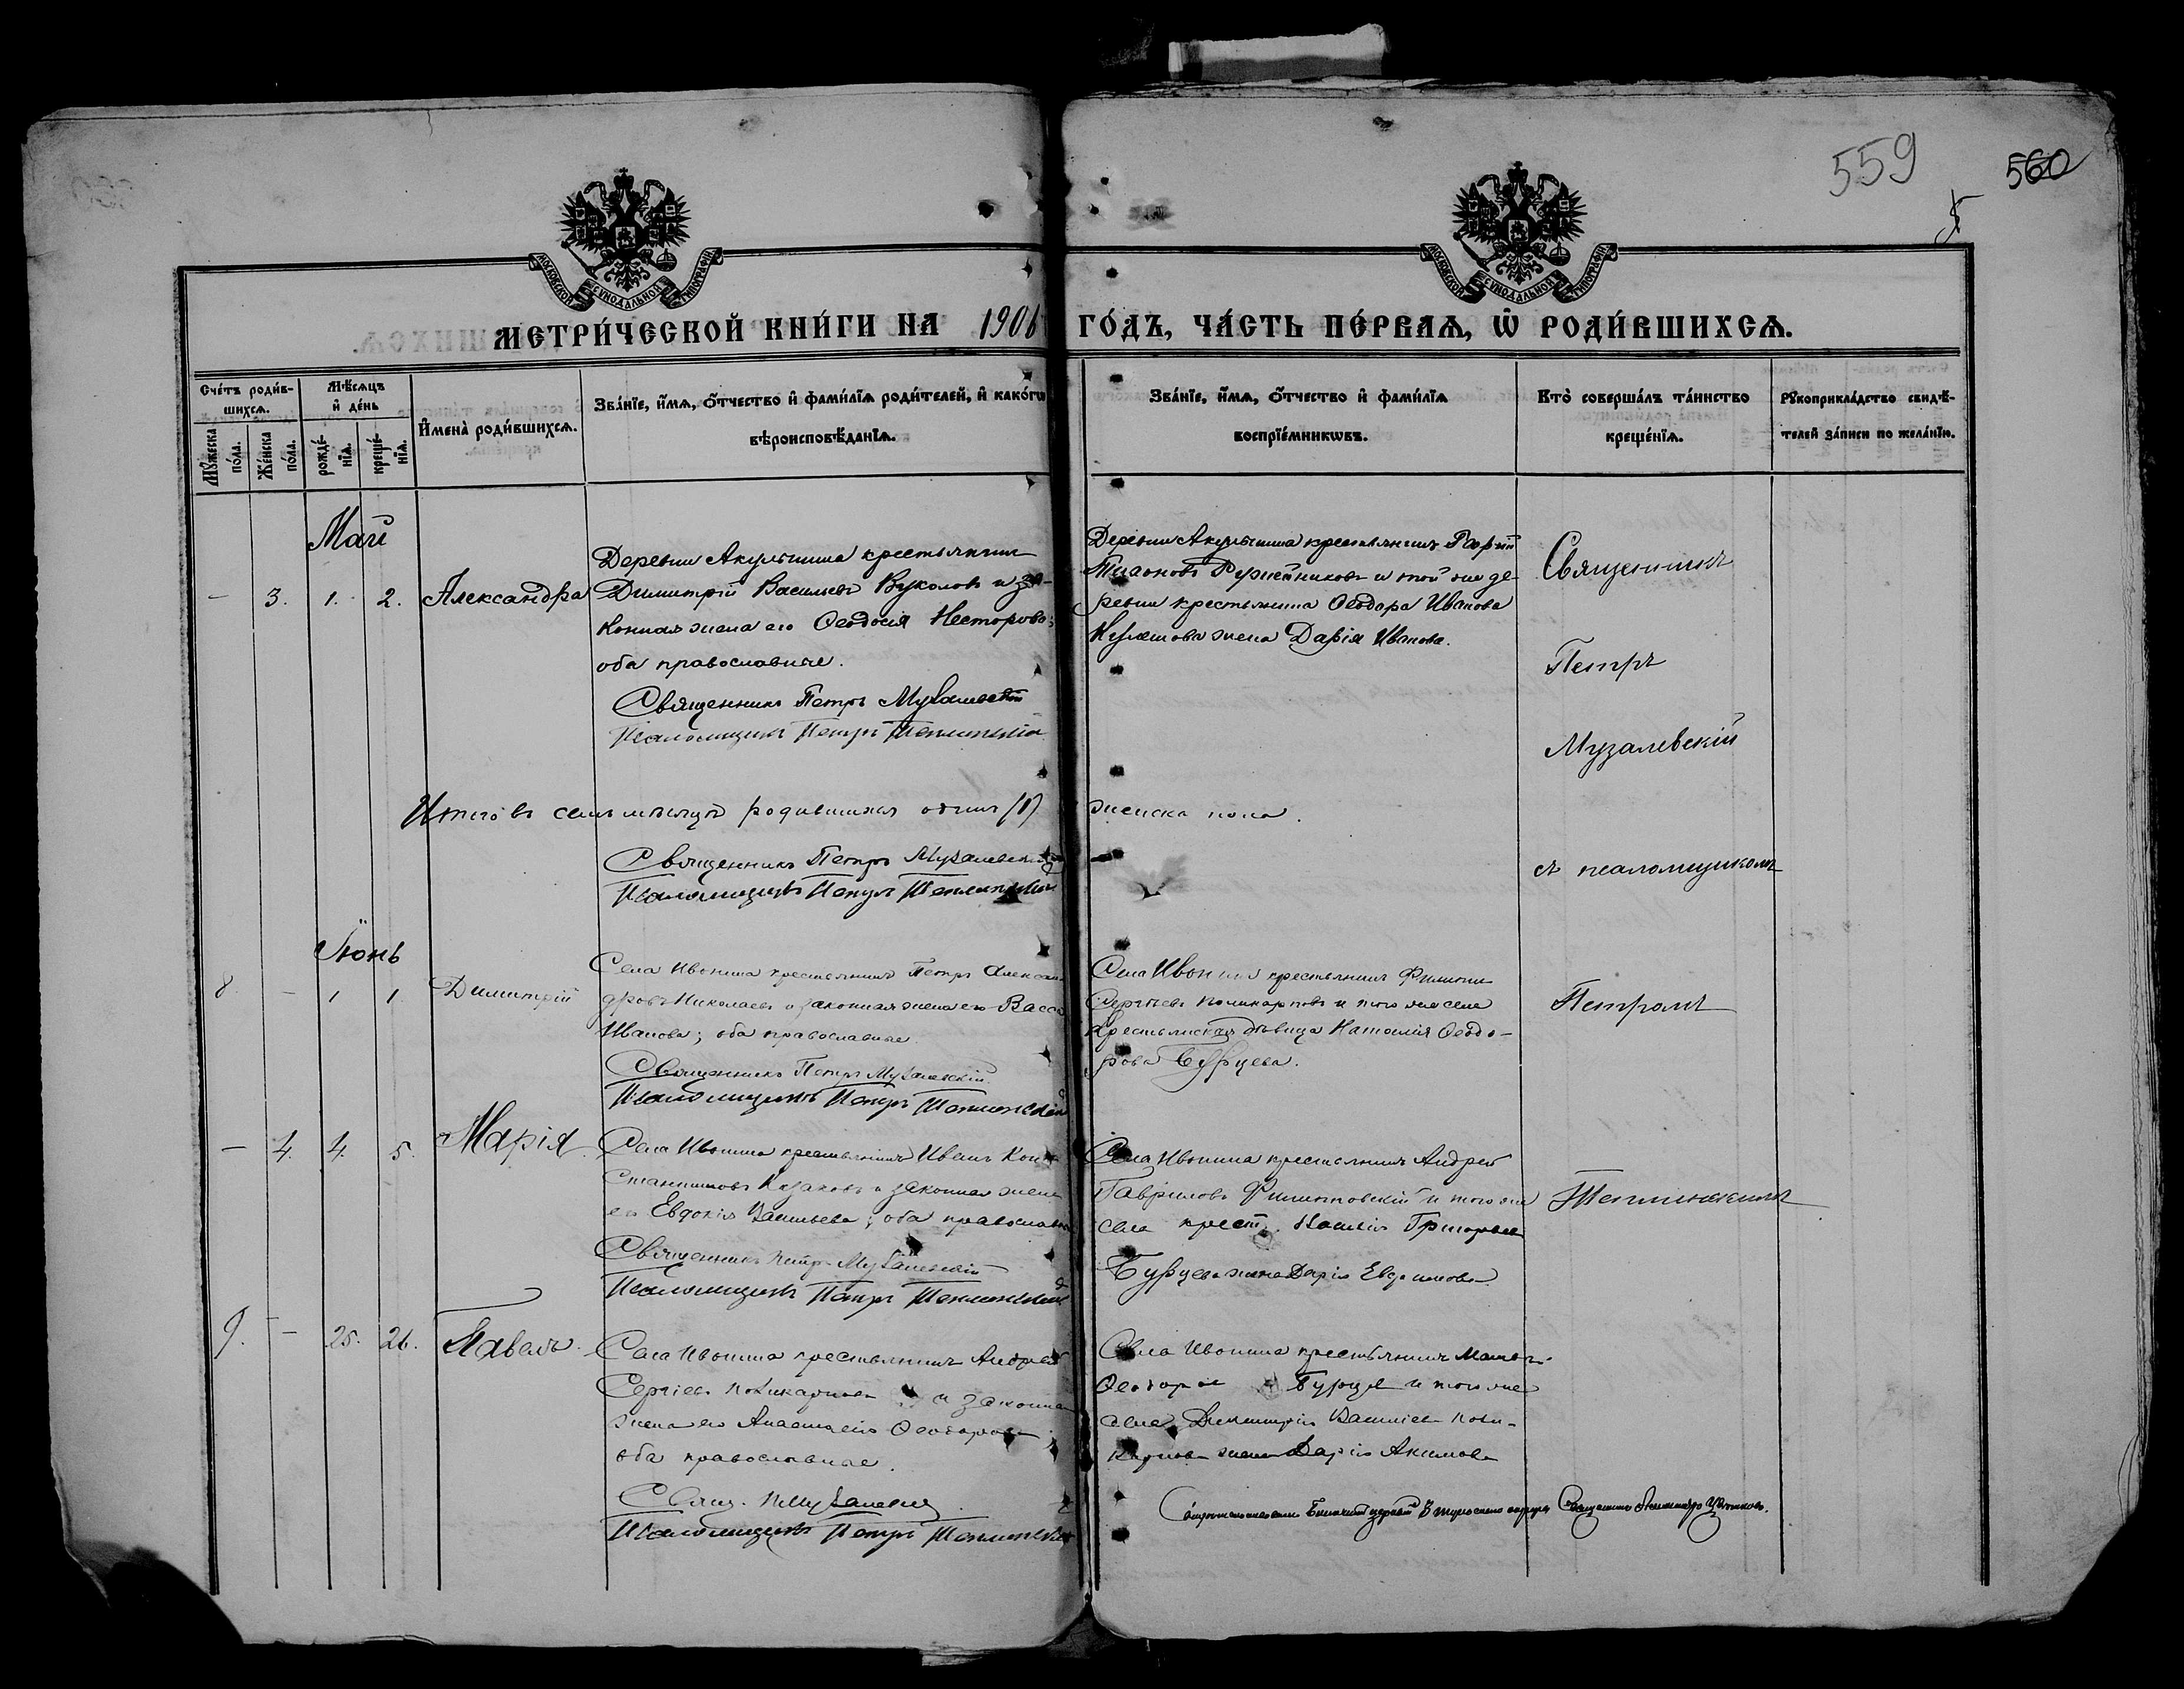 559
560
5
МОСКОВСКОЙ СѴНОДАЛЬНОЙ ТИПОГРАФІИ
МОСКОВСКОЙ СѴНОДАЛЬНОЙ ТИПОГРАФІИ
МЕТРИ́ЧЕСКОЙ КНИ́ГИ НА 1906 ГО́ДЪ, ЧА́СТЬ ПЕ́РВАѦ, Ѿ РОДИ́ВШИХСѦ.
Сче́тъ роди́в-
шихсѧ.
Мꙋ́жеска
по́ла.
Же́нска
по́ла.
Мѣ́сѧцъ
и҆ де́нь
рожде́-
нїѧ.
креще́-
нїѧ.
И҆мена̀ роди́вшихсѧ.
Зва́нїе, и҆́мѧ, ѻ҆́тчество и҆ фами́лїѧ роди́телей, и҆ како́гѡ
вѣроисповѣ́данїѧ.
Зва́нїе, и҆́мѧ, ѻ҆́тчество и҆ фами́лїѧ
воспрїе́мникѡвъ.
Кто̀ соверша́лъ та́инство
креще́нїѧ.
Рꙋкоприкла́дство свидѣ́-
телей за́писи по жела́нїю.
Май
- 3. 1. 2. Александра
Деревни Акульшина крестьянинъ
Димитрій Васильевъ Вуколовъ и за-
конная жена его Ѳеодосія Несторова;
оба православные.
Священникъ Петръ Музалевскій
Псаломщикъ Петръ
Деревни Акульшина крестьянинъ
и той же де-
ревни крестьянина Ѳеодора Иванова
жена Дарія Иванова.
Священникъ
Петръ
Музалевскій
съ псаломщикомъ
Петромъ
Итого въ семъ мѣсяцѣ родившихся одинъ (1) женска пола.
Священникъ Петръ Музалевскій
Псаломщикъ Петръ
Іюнь
8 - 1 1 Димитрій
Села Ивонина крестьянинъ Петръ Алексан-
дровъ Николаевъ и законная жена его Васса
Иванова; оба православные.
Священникъ Петръ Музалевскій
Псаломщикъ Петръ
Села Ивонина крестьянинъ Филиппъ
Сергѣевъ Поликарповъ и того же села
крестьянская дѣвица Наталія Ѳеодо-
рова Бурцева.
- 4. 4. 5. Марія.
Села Ивонина крестьянинъ Иванъ Кон-
стантиновъ Казаковъ и законная жена
его Евдокія Васильева; оба православные
Священникъ Петръ Музалевскій
Псаломщикъ Петръ
Села Ивонина крестьянинъ Андрей
Гавриловъ и того же
села крест. Григорьева
Бурцева жена Дарія Евдокимова
9. - 25. 26. Павелъ.
Села Ивонина крестьянинъ Андрей
Сергіевъ Поликарповъ и законная
жена его Анастасія Ѳеодорова;
оба православные.
Свящ. П. Музалевскій
Псаломщикъ Петръ
Села Ивонина крестьянинъ
Бурцевъ и того же
села Димитрія Васильева Поли-
карпова жена Дарія Акимова
Священникъ